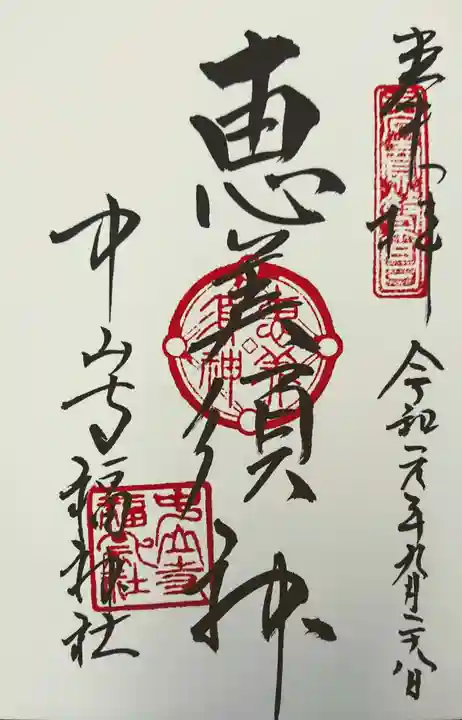 奉拝
令和元年九月二十八日
恵美須神
中山寺福神社